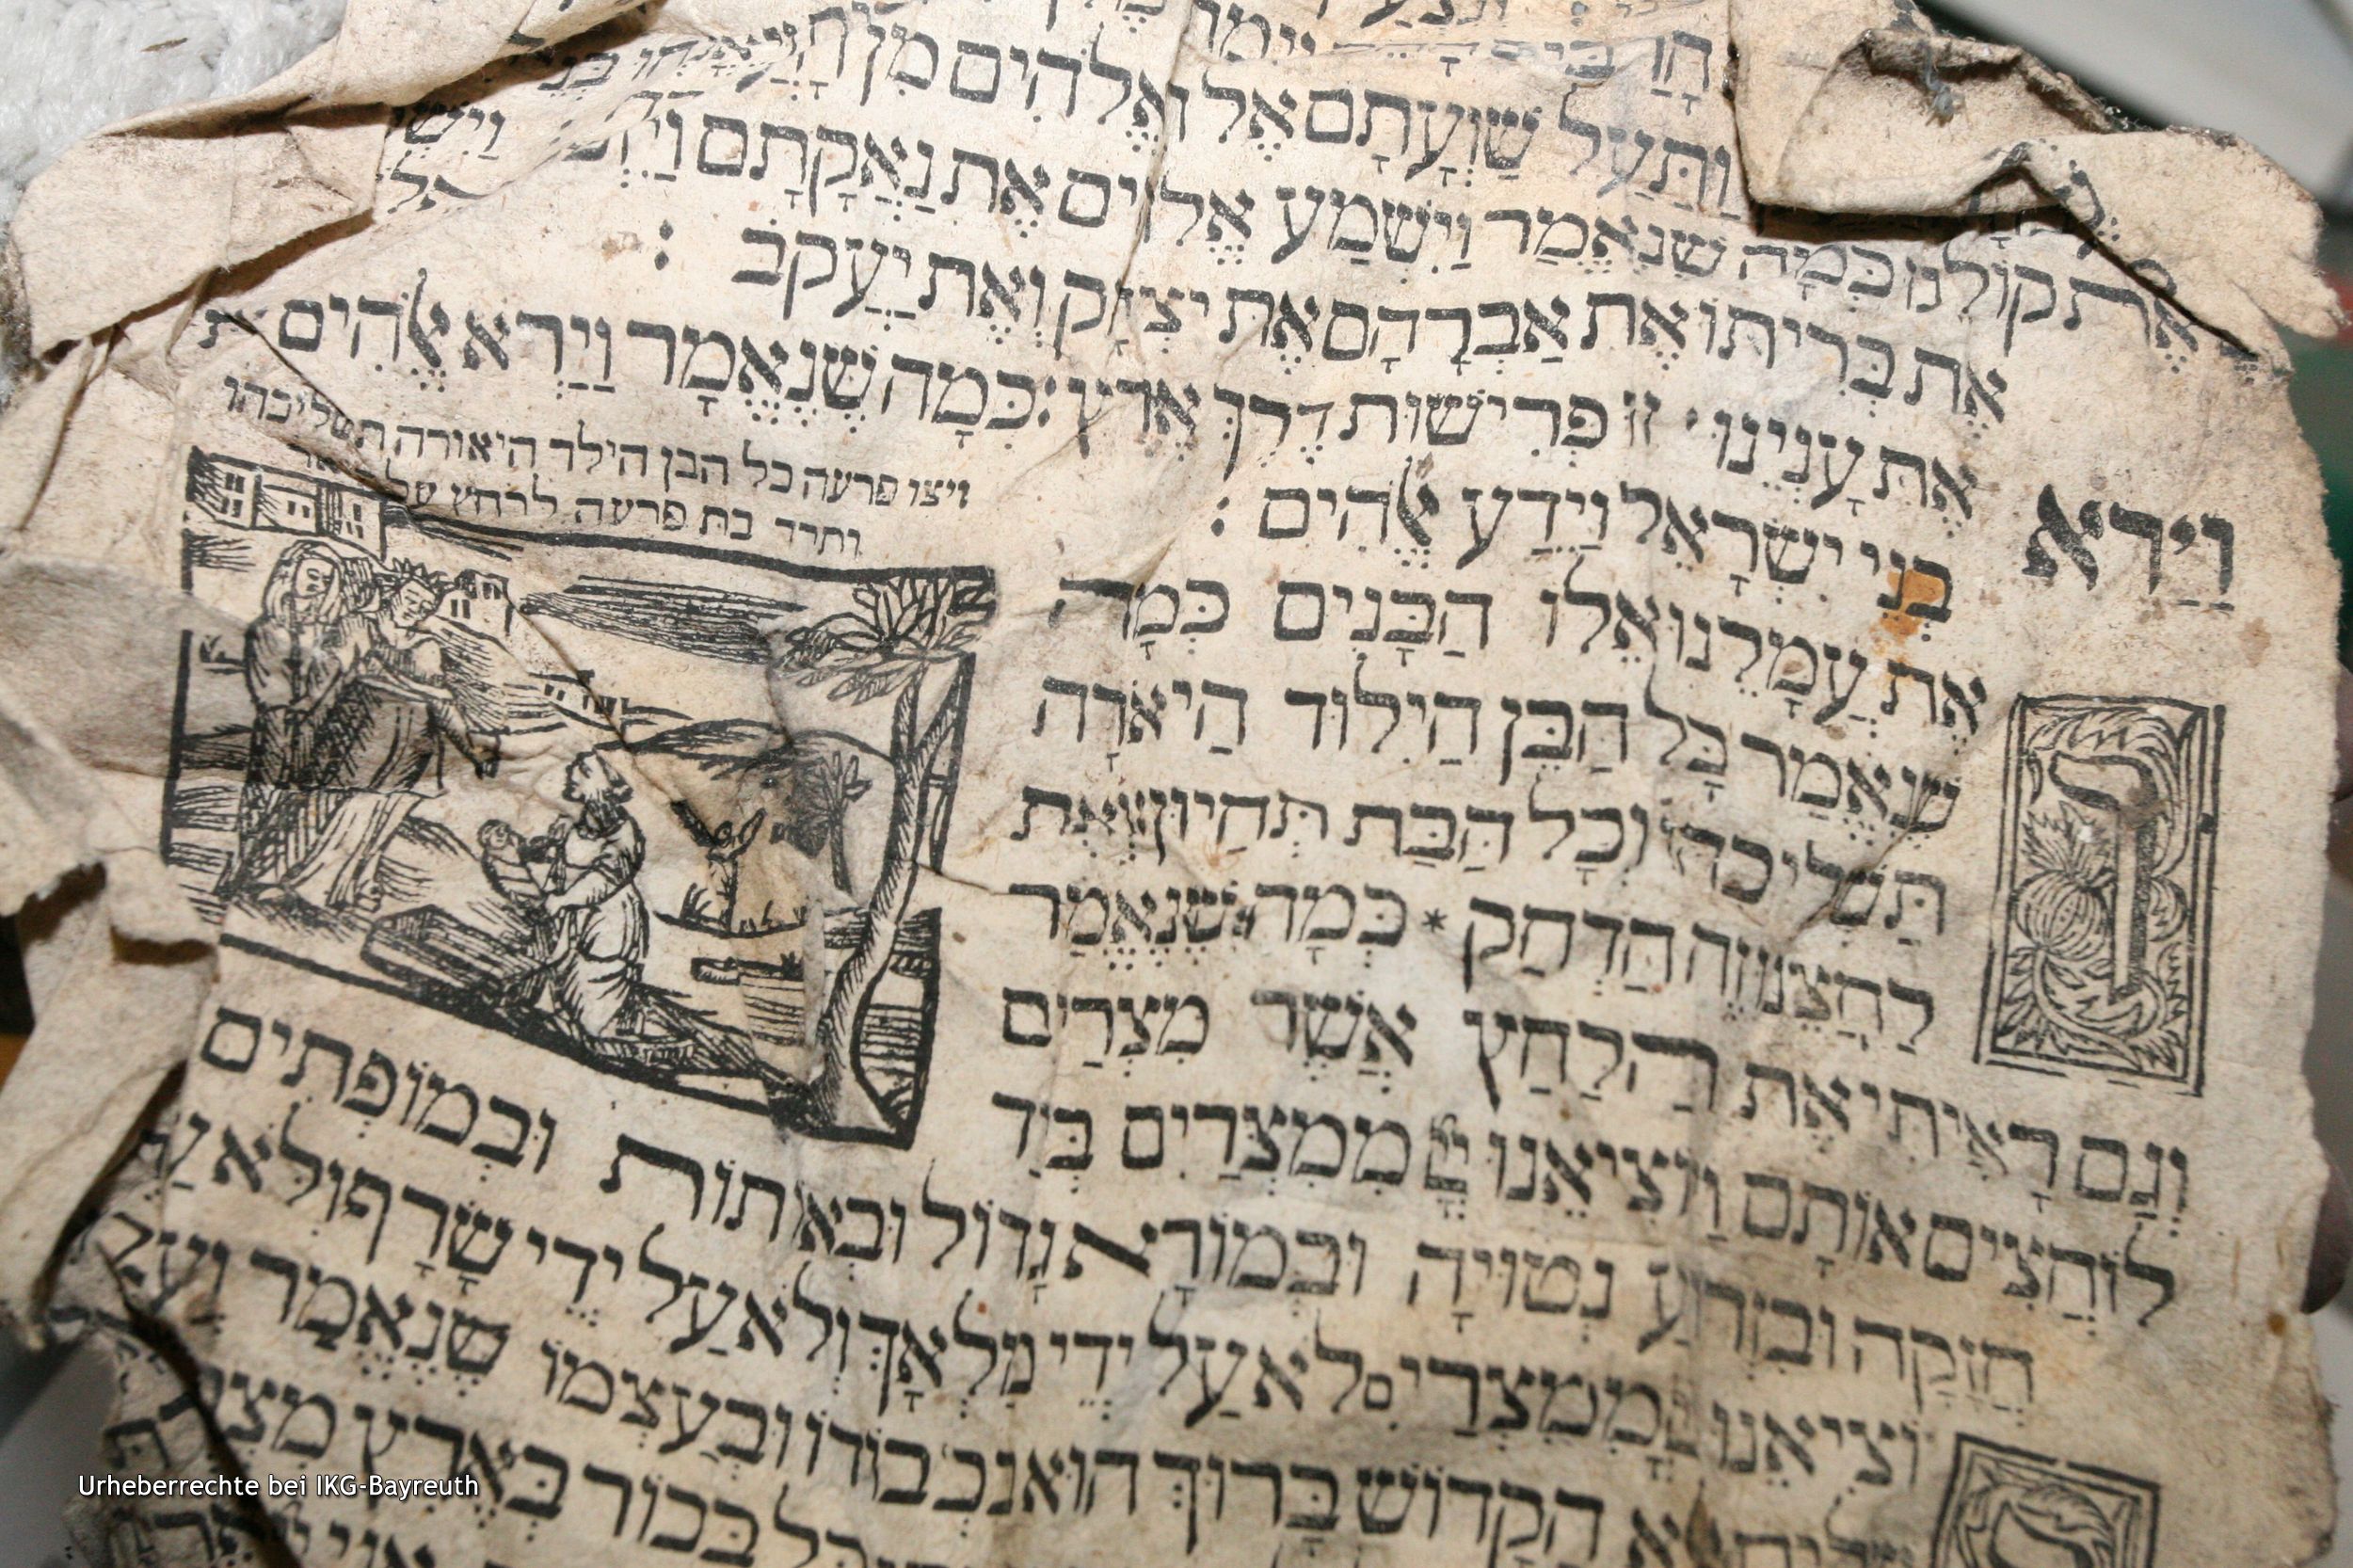 וַתַּעַל שַׁוְעָתָם אֶל אֱלֹהִים מִן
אֶת קוֹלֵנוּ כְּמָה שֶׁנֶּאֱמַר וַיִּשְׁמַע אֱלֹהִים אֶת נַאֲקָתָם
אֶת בְּרִיתוֹ אֶת אַבְרָהָם אֶת יִצְחָק וְאֶת יַעֲקֹב :
וַיַּרְא אֶת עָנְיֵנוּ · זוֹ פְּרִישׁוּת דֶּרֶךְ אֶרֶץ : כְּמָה שֶׁנֶּאֱמָר וַיַּרְא אֱלֹהִים אֶת
בְּנֵי יִשְׂרָאֵל וַיֵּדַע אֱלֹהִים :
ויצו פרעה כל הבן הילד היאורה תשליכהו
ותרד בת פרעה לרחץ על היאר
אֶת עֲמָלֵנוּ אֵלוּ הַבָּנִים כְּמָה
שֶׁנֶּאֱמַר כָּל הַבֵּן הַיִּלּוֹד הַיְאֹרָה
תַּשְׁלִיכֻהוּ וְכָל הַבַּת תְּחַיּוּן וְאֶת
לַחֲצֵנוּ זֶה הַדְּחַק * כְּמָה שֶׁנֶּאֱמַר
וְגַם רָאִיתִי אֶת הַלַּחַץ אֲשֶׁר מִצְרַיִם
לוֹחֲצִים אוֹתָם וַיּוֹצִיאֵנוּ יְיָ מִמִּצְרַיִם בְּיָד
חֲזָקָה וּבִזְרֹעַ נְטוּיָה וּבְמוֹרָא גָּדוֹל וּבְאוֹתוֹת וּבְמוֹפְתִים
וַיּוֹצִיאֵנוּ יְיָ מִמִּצְרַיִם לֹא עַל יְדֵי מַלְאָךְ וְלֹא עַל יְדֵי שָׂרָף וְלֹא עַל
הַקָּדוֹשׁ בָּרוּךְ הוּא בִּכְבוֹדוֹ וּבְעַצְמוֹ שֶׁנֶּאֱמַר
כָל בְּכוֹר בְּאֶרֶץ
Urheberrechte bei IKG-Bayreuth